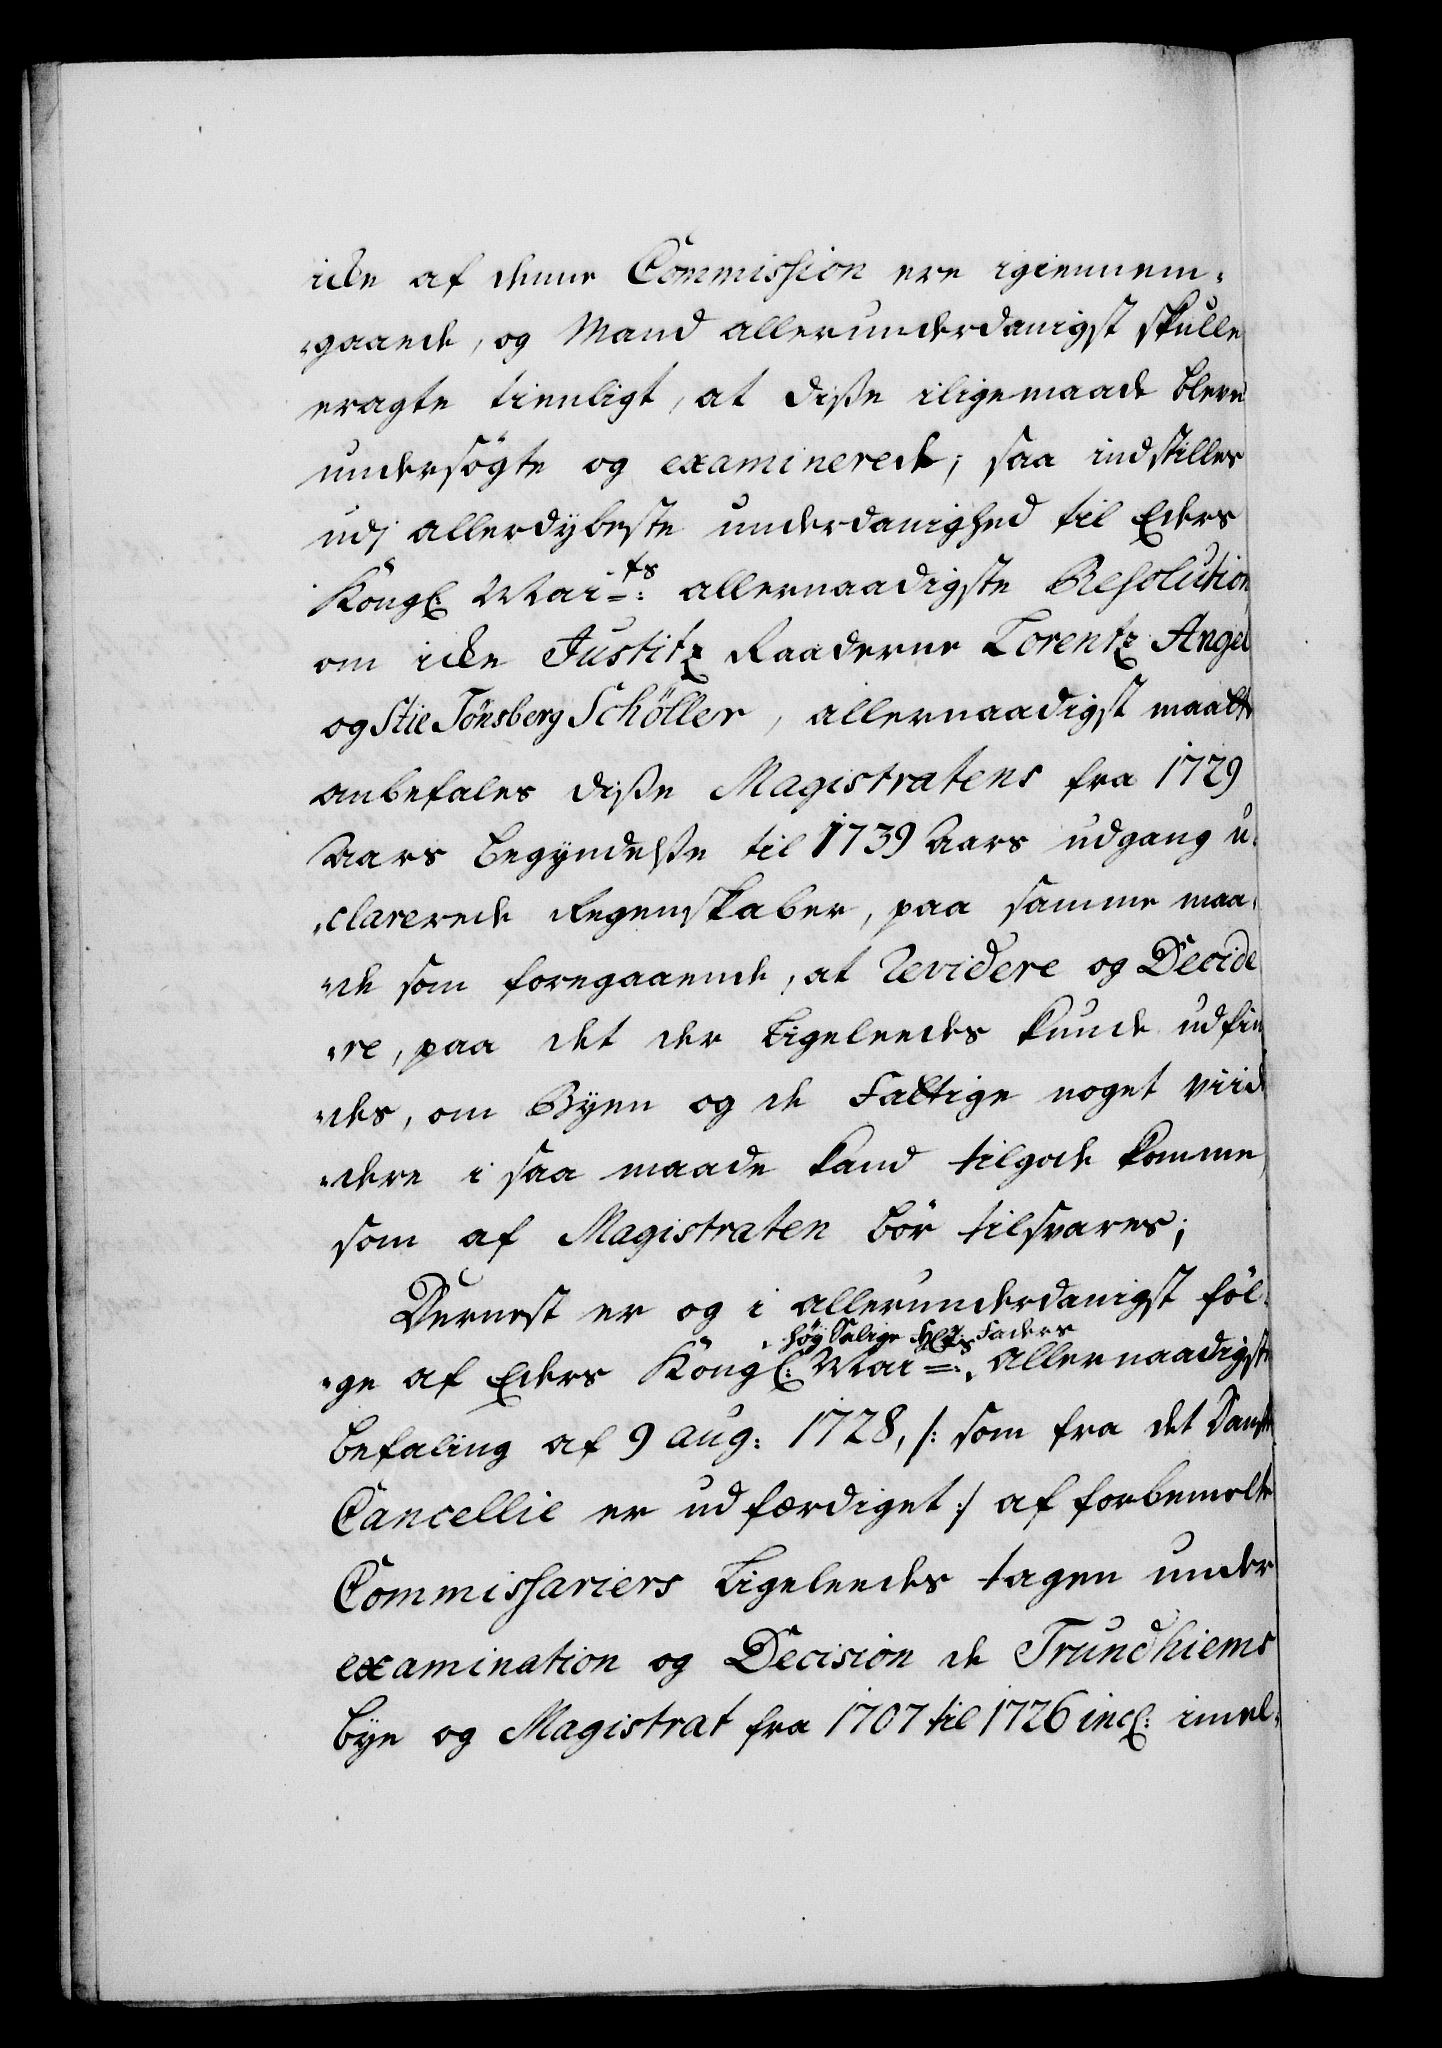 icke af denne Commission ere igiennem-
-gaaede, og Mand allerunderdanigst skulle
eragte tienligt, at diße iligemaade bleve
undersögte og examinerede; saa indstilles
udj allerdybeste underdanighed til Eders
Kongl: Mai-ts: allernaadigste Resolution
om icke Justitz Raaderne Lorentz Angel
og Stie Tönsberg Schöller, allernaadigst maatte
anbefales diße Magistratens fra 1729
Aars begyndelße til 1739 Aars udgang u-
-clarerede Regenskaber, paa samme maa-
-de som foregaaende, at Revidere og Decide
-re, paa det der Ligeleedes kunde udfin
-des, om Byen og de Fattige noget viid
-dere i saa maade kand tilgode komme,
som af Magistraten bör tilsvares;
Dernest er og i allerunderdanigst föl-
höy Salige Hr: Faders
-ge af Eders Kongl: Mai-ts: Allernaadigste
befaling af 9 aug: 1728, /: som fra det Danske
Cancellie er udfærdiget :/ af forbemelte
Commissariers Ligeleedes tagen under
examination og Decision de Trundhiems
bye og Magistrat fra 1707 til 1726 incl: imel-